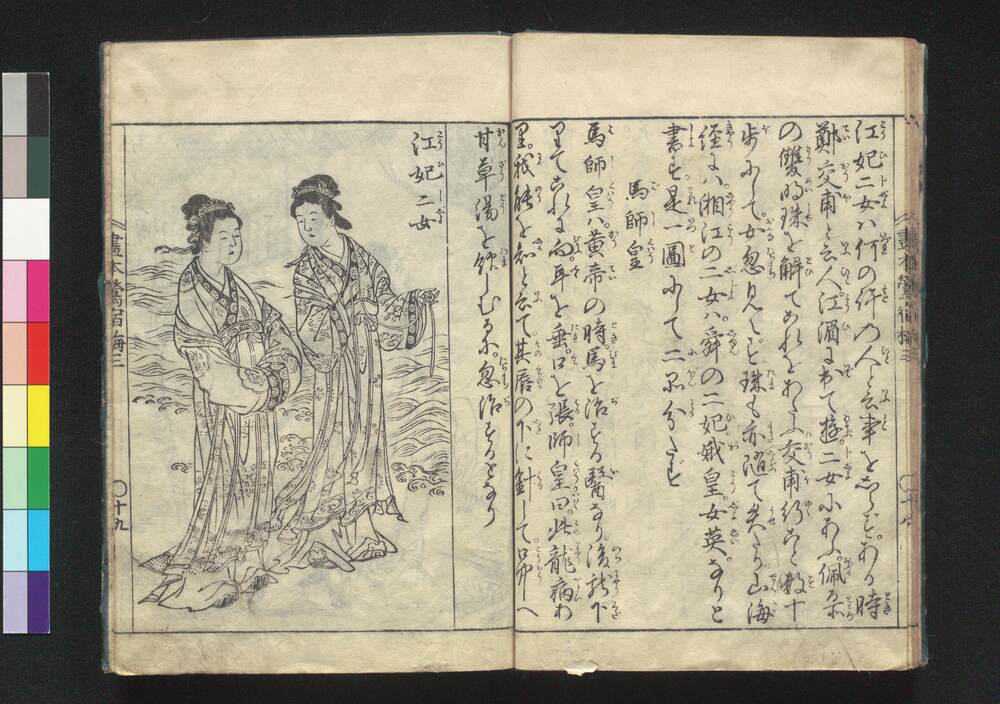 江妃二女ハ何の許の人と云事をしらず。ある時
鄭交甫と云人江湄に出て遊。二女にあふ。佩る所
の雙明珠を解てこれをあたふ。交甫行こと数十
歩にして。女忽見えず珠も亦随て失たり山海
経にハ湘江の二女ハ。舜の二妃娥皇。女英。なりと
書す是一圖にて二不分たず
馬師皇
馬師皇ハ。黄帝の時。馬を治する醫なり。後龍下
りてこれに向。耳を垂。口を張。師皇曰。此龍病あ
り。我能を知と云て其唇の下に針して。口中へ
甘草湯を飲しむるに。忽治するとなり
江妃二女
畫本鶯宿梅三
〇十九